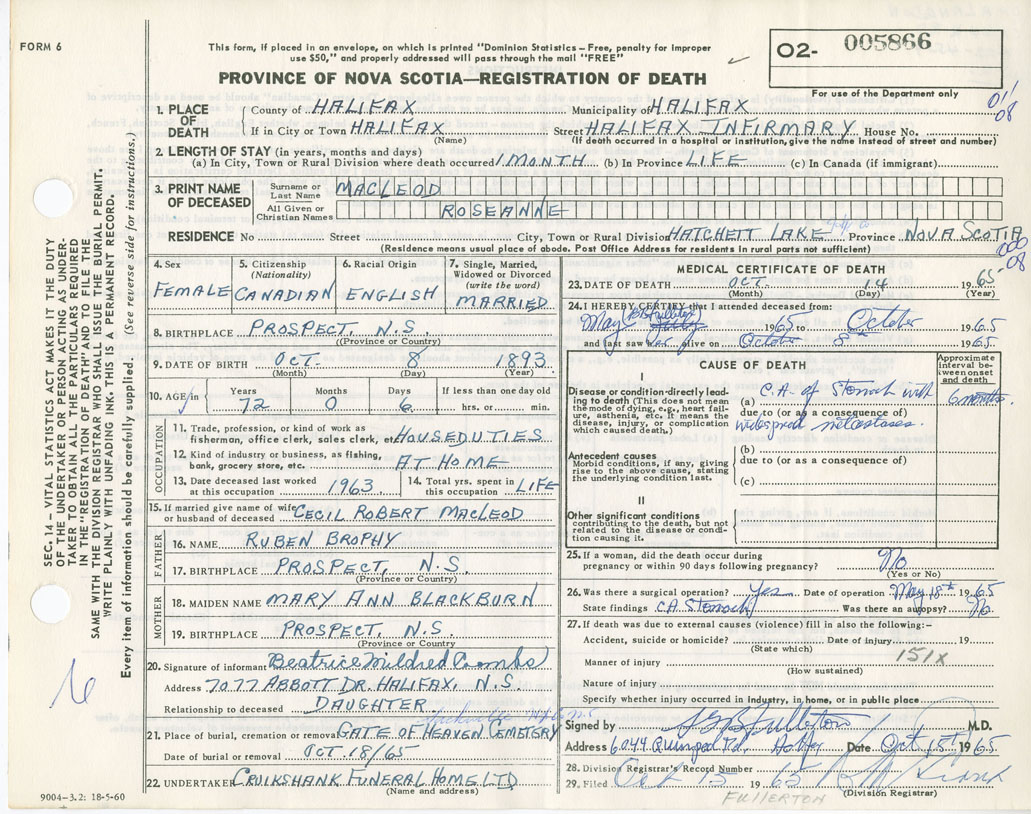 FORM 6
This form, if placed in an envelope, on which is printed "Dominion Statistics – Free, penalty for improper
use $50," and properly addressed will pass through the mail "FREE"
PROVINCE OF NOVA SCOTIA—REGISTRATION OF DEATH
02- 005866
For use of the Department only
011
08
1. PLACE OF DEATH
County of HALIFAX Municipality of HALIFAX
If in City or Town HALIFAX Street HALIFAX INFIRMARY House No.
(Name) (If death occurred in a hospital or institution, give the name instead of street and number)
2. LENGTH OF STAY (in years, months and days)
(a) In City, Town or Rural Division where death occurred 1 MONTH (b) In Province LIFE (c) In Canada (if immigrant)
3. PRINT NAME OF DECEASED
Surname or Last Name MACLEOD
All Given or Christian Names ROSEANNE
RESIDENCE No Street City, Town or Rural Division HATCHETT LAKE Province NOVA SCOTIA
(Residence means usual place of abode. Post Office Address for residents in rural parts not sufficient)
000
08
4. Sex FEMALE
5. Citizenship (Nationality) CANADIAN
6. Racial Origin ENGLISH
7. Single, Married, Widowed or Divorced (write the word) MARRIED
8. BIRTHPLACE PROSPECT, N.S
(Province or Country)
9. DATE OF BIRTH OCT. 8 1893
(Month) (Day) (Year)
10. AGE in Years 72 Months 0 Days 6 If less than one day old hrs. or min.
OCCUPATION
11. Trade, profession, or kind of work as fisherman, office clerk, sales clerk, etc. HOUSEDUTIES
12. Kind of industry or business, as fishing, bank, grocery store, etc. AT HOME
13. Date deceased last worked at this occupation 1963
14. Total yrs. spent in this occupation LIFE
15. If married give name of wife or husband of deceased CECIL ROBERT MACLEOD
FATHER
16. NAME RUBEN BROPHY
17. BIRTHPLACE PROSPECT, N.S.
(Province or Country)
MOTHER
18. MAIDEN NAME MARY ANN BLACKBURN
19. BIRTHPLACE PROSPECT, N.S.
(Province or Country)
20. Signature of informant Beatrice Mildred Coombs
Address 7077 ABBOTT DR. HALIFAX, N.S.
Relationship to deceased DAUGHTER
21. Place of burial, cremation or removal GATE OF HEAVEN CEMETERY
Date of burial or removal OCT. 18/65
22. UNDERTAKER CRUIKSHANK FUNERAL HOME LTD
(Name and address)
MEDICAL CERTIFICATE OF DEATH
23. DATE OF DEATH OCT. 14 1965
(Month) (Day) (Year)
24. I HEREBY CERTIFY that I attended deceased from:
May 1965 to October 1965
and last saw her alive on October 8th 1965
CAUSE OF DEATH
Approximate interval between onset and death
I
Disease or condition directly leading to death (This does not mean the mode of dying, e.g., heart failure, asthenia, etc. It means the disease, injury, or complication which caused death.)
(a) C.A. of Stomach with 6 months.
due to (or as a consequence of)
widespread metastases.
Antecedent causes
Morbid conditions, if any, giving rise to the above cause, stating the underlying condition last.
(b)
due to (or as a consequence of)
(c)
II
Other significant conditions
contributing to the death, but not related to the disease or condition causing it.
25. If a woman, did the death occur during pregnancy or within 90 days following pregnancy? No
(Yes or No)
26. Was there a surgical operation? Yes Date of operation May 18th 1965
State findings C.A. Stomach Was there an autopsy? No
27. If death was due to external causes (violence) fill in also the following:–
Accident, suicide or homicide? Date of injury 19
(State which) 151X
Manner of injury
(How sustained)
Nature of injury
Specify whether injury occurred in industry, in home, or in public place
Signed by Fullerton M.D.
Address 6044 Quinpool Rd. Date Oct 15th 1965
28. Division Registrar's Record Number
29. Filed Oct 15 1965
(Division Registrar)
FULLERTON
SEC. 14 – VITAL STATISTICS ACT MAKES IT THE DUTY
OF THE UNDERTAKER OR PERSON ACTING AS UNDER-
TAKER TO OBTAIN ALL THE PARTICULARS REQUIRED
IN THE "REGISTRATION OF DEATH" AND TO FILE THE
SAME WITH THE DIVISION REGISTRAR WHO SHALL ISSUE THE BURIAL PERMIT.
WRITE PLAINLY WITH UNFADING INK. THIS IS A PERMANENT RECORD.
Every item of information should be carefully supplied. (See reverse side for instructions.)
9004–3.2: 18-5-60